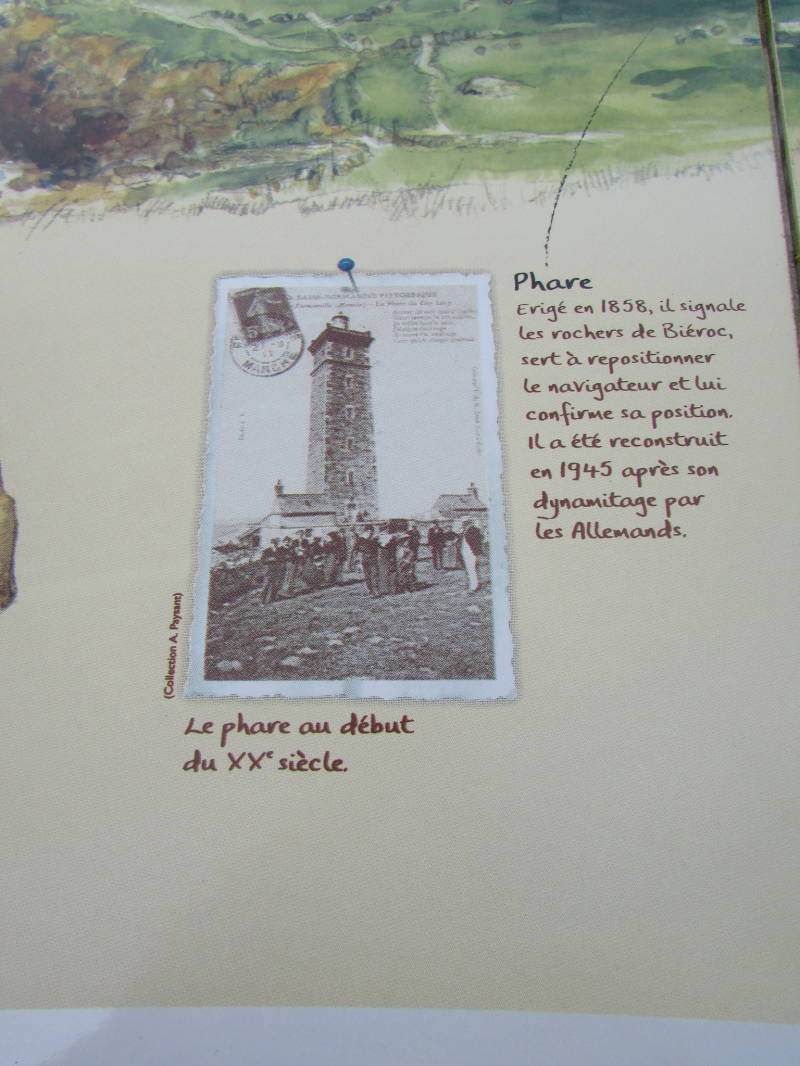 Phare
Erigé en 1858, il signale
les rochers de Biéroc,
sert à repositionner
le navigateur et lui
confirme sa position.
Il a été reconstruit
en 1945 après son
dynamitage par
les Allemands.
BASSE-NORMANDIE PITTORESQUE
Le Phare du Cap
MANCHE
(Collection A. Paysant)
Le phare au début
du XXe siècle.